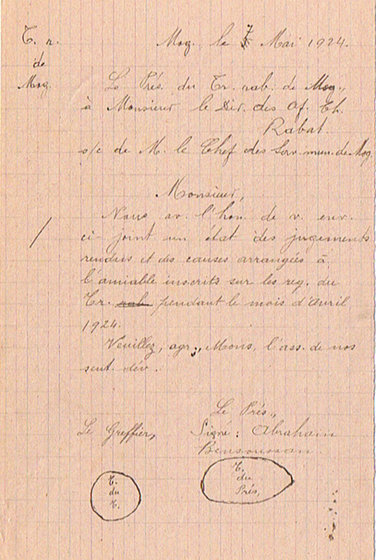 T. r.
de
Mog.
Mog. le 7 Mai 1924.
Le Prés. du Tr. rab. de Mog.,
à Monsieur le Dir. des Af. Ch.
Rabat.
s/c de M. le Chef des Serv. mun. de Mog
Monsieur,
Nous av. l'hon. de v. env.
ci-joint un état des jugements
rendus et des causes arrangés à
l'amiable inscrits sur les reg. du
Tr. rab. pendant le mois d'avril
1924.
Veuillez, agr., Mons, l'ass. de nos
sent. dév.
Le Prés.,
Le Greffier, Signé: Abraham
Bensoussan
T.
du
T.
T.
du
Prés.